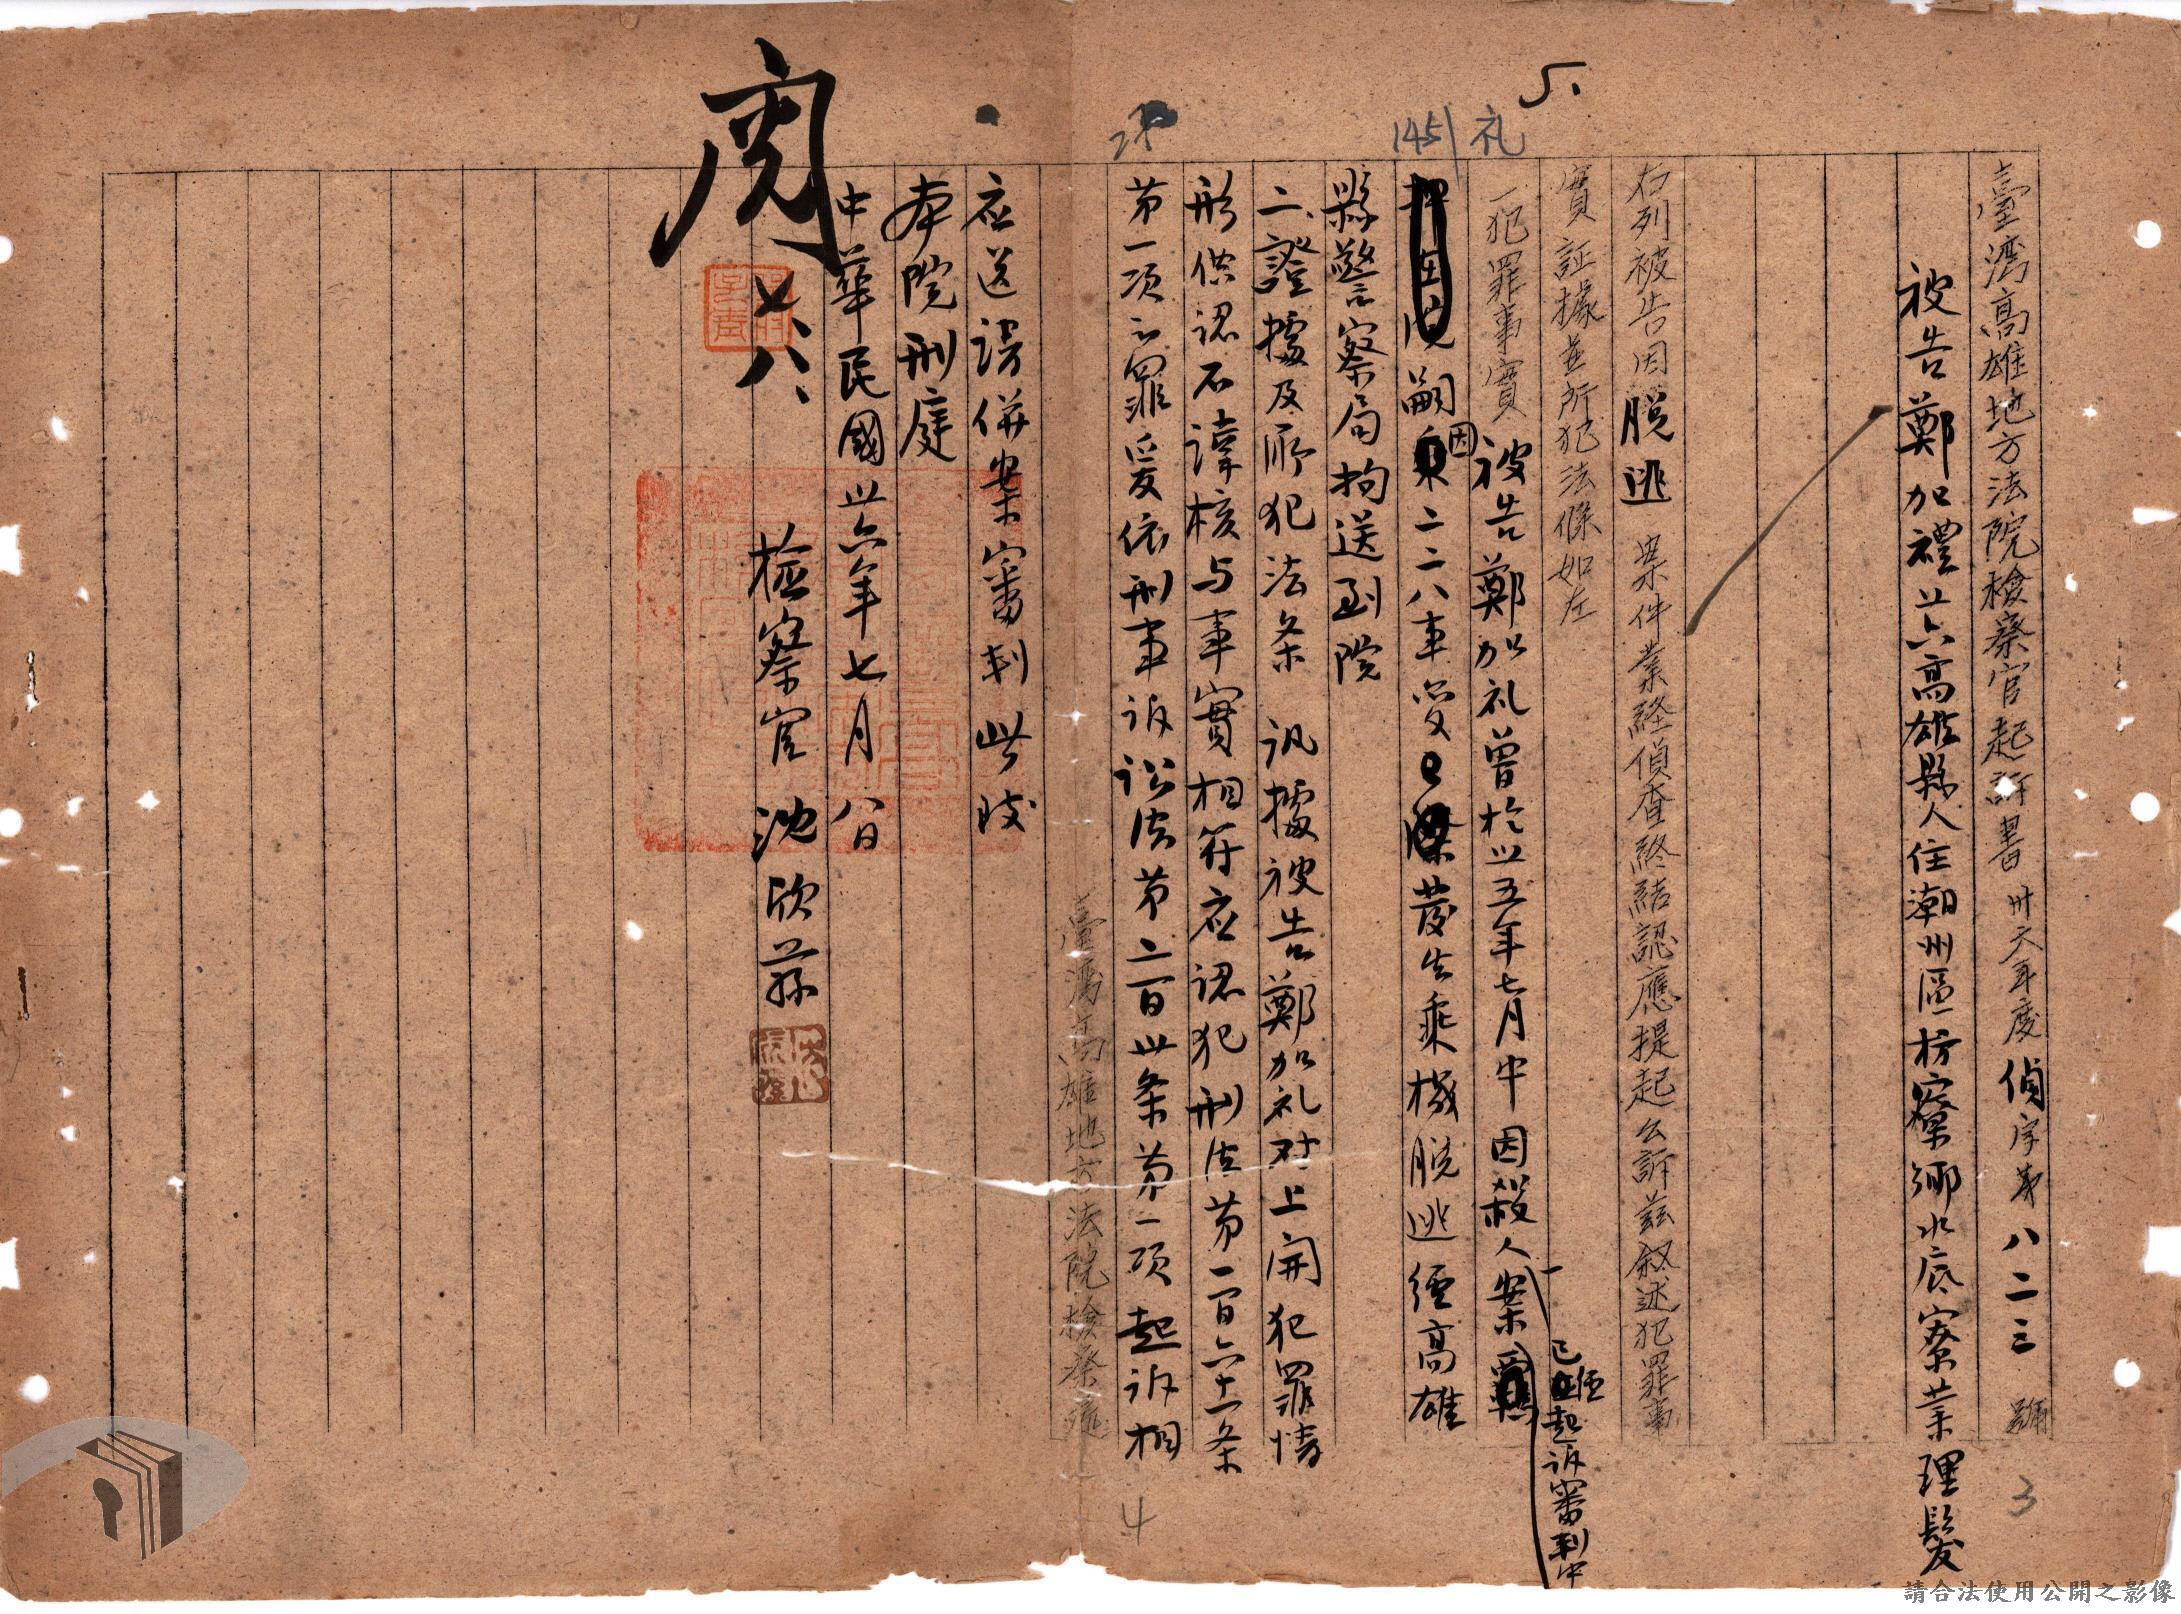 5、
礼
145
臺灣高雄地方法院檢察官起訴書 卅六年度偵字第八二三號
被告鄭加禮廿六高雄縣人住潮州區枋寮鄉水底寮業理髮
右列被告因脫逃案件業經偵查終結認應提起公訴茲叙述犯罪事
實証據並所犯法條如左
一犯罪事實 被告鄭加礼曾於卅五年七月中因殺人案
已經起訴審判中
嗣因二二八事變發生乘機脫逃經高雄
縣警察局拘送到院
二、證據及所犯法条 訊據被告鄭加礼对上開犯罪情
形供認不諱核与事實相符应認犯刑法苐一百六十一条
苐一项之罪爰依刑事诉讼法苐二百卅条苐一项起诉相
臺灣高雄地方法院檢察處
应送請併案審判此致
本院刑庭
中華民國卅六年七月八日
檢察官 沈欣蓀
閱
七、八、
3
4
請合法使用公開之影像